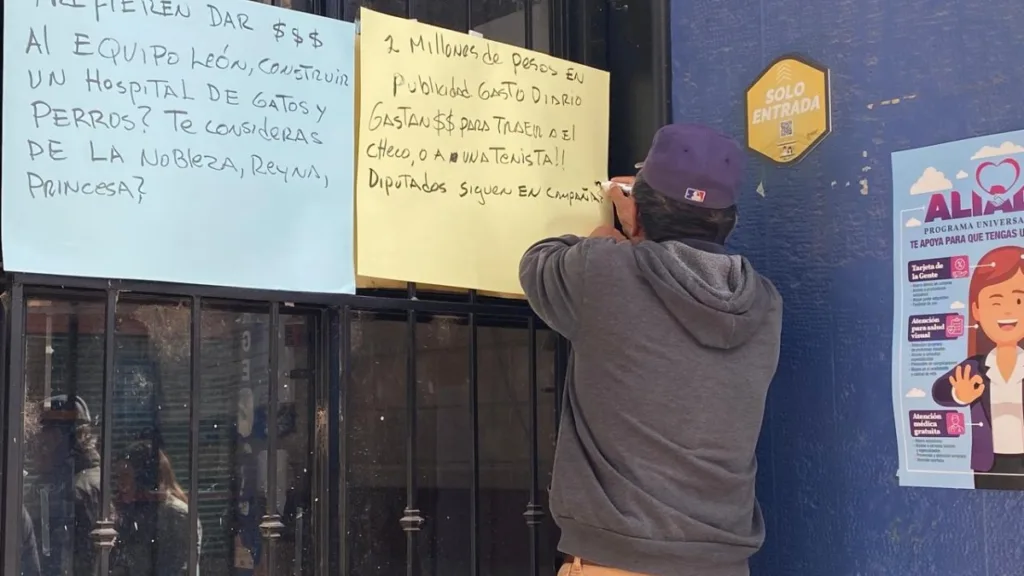 PREFIEREN DAR $$$
Al EQUIPO LEÓN, CONSTRUIR
UN HOSPITAL DE GATOS Y
PERROS? TE CONSIDERAS
DE LA NOBLEZA, REYNA,
PRINCESA?
2 Millones de pesos EN
Publicidad GASTO DIARIO
GASTAN $$ PARA TRAER A El
CHECO, O A UNA TENISTA!!
DIPUTADOS SIGUEN EN CAMPAÑA?
SOLO
ENTRADA
ALIA
PROGRAMA UNIVERSA
TE APOYA PARA QUE TENGAS U
Tarjeta de
la Gente
Atención
para salud
visual
Atención
médica
gratuita